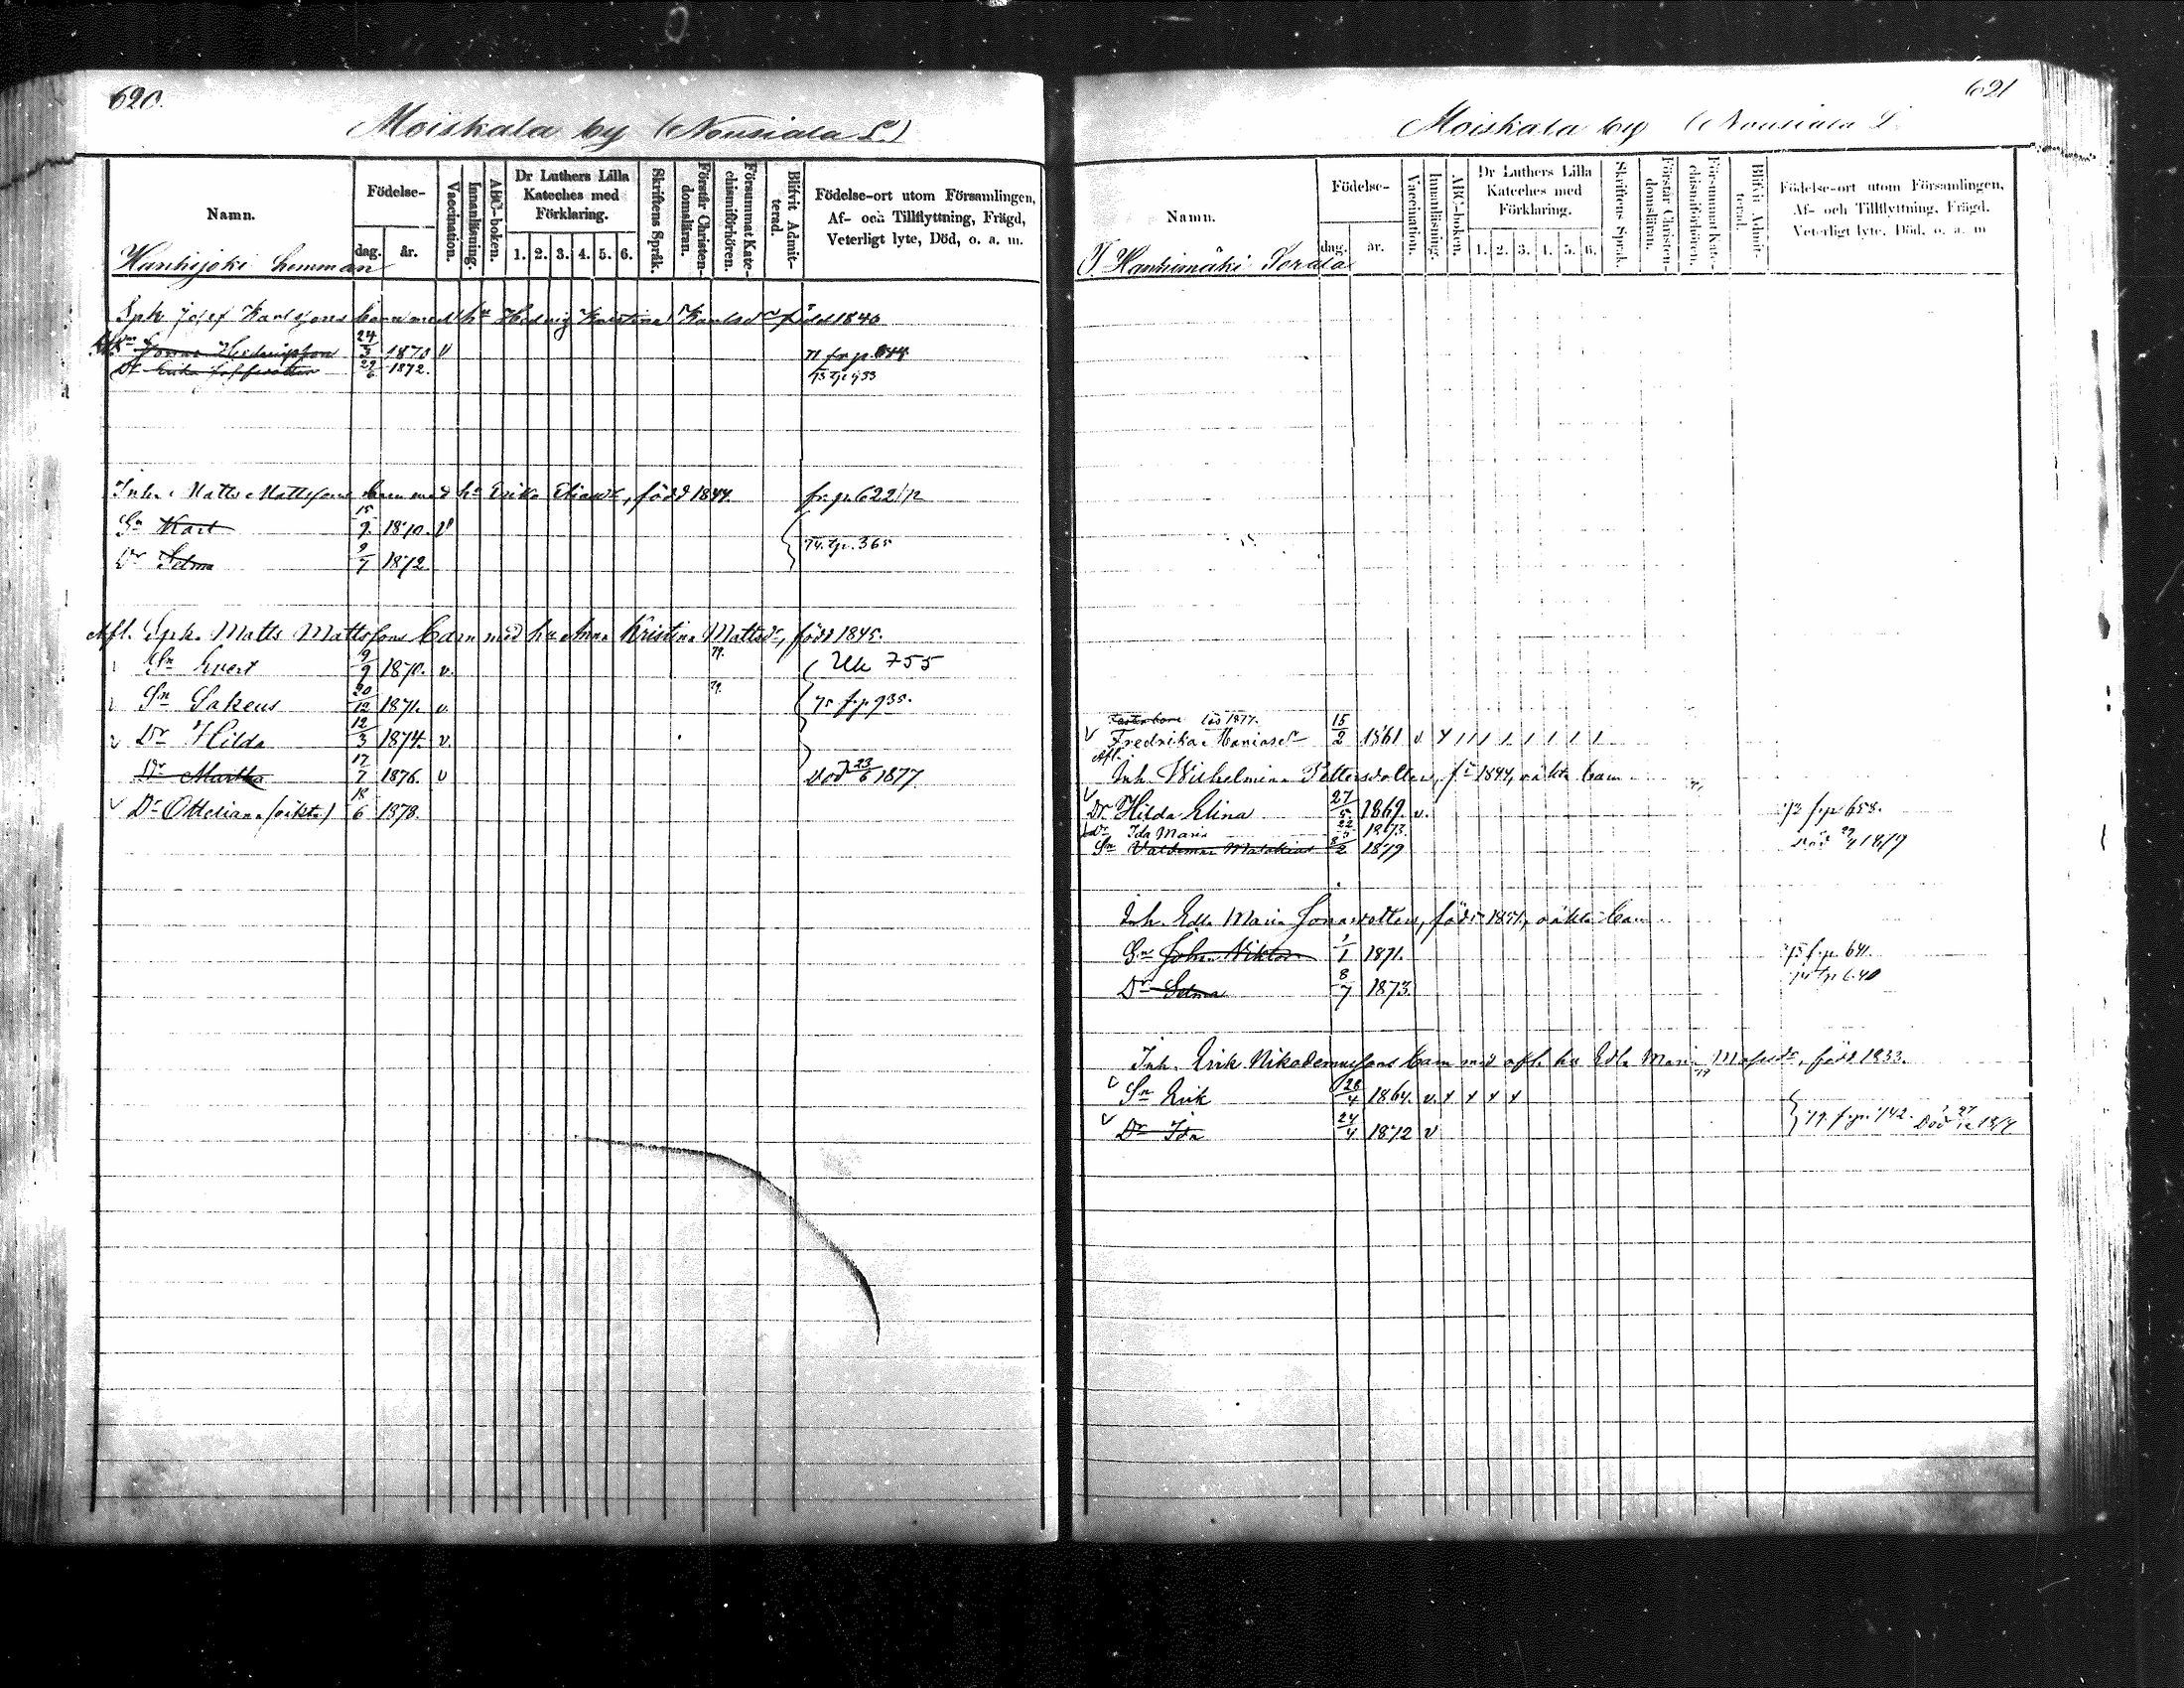 620.
Moiskala by (Nousiala L.)
Namn.
Födelse-
dag. år.
Vaccination.
Innanläsning.
ABC-boken.
Dr Luthers Lilla
Kateches med
Förklaring.
1. 2. 3. 4. 5. 6.
Skriftens Språk.
Förstår Christen-
domsläran.
Försummat Kate-
chismiförhören.
Blifvit Admit-
terad.
Födelse-ort utom Församlingen,
Af- och Tillflyttning, Frägd,
Veterligt lyte, Död, o. a. m.
Hanhijoki hemman
Sph. Josef Karlssons barn med hu Hedvig Kristina Karlsdr född 1840
24/3 1870 v fr. p. 644
29/6 1872.
Inh. Matts Mattssons barn med hu Erika Eliasdr, född 1844. fr. p. 622/72
Sn Karl 15/9 1870. v
Dr Selma 9/7 1872 74. tp. 365
Afl. Sph. Matts Mattssons barn med hu Anna Kristina Mattsdr, född 1845.
Sn Evert 9/9 1870. v. 79. Uk 755
Sn Sakeus 20/12 1871. v. 79. 75 f. p 935.
Dr Hilda 12/3 1874. v.
Dr Martha 17/7 1876. v Död 23/6 1877
Dr Otteliana (oäkta) 18/6 1878.
621
Moiskala by (Nousiala L.
Namn.
Födelse-
dag. år.
Vaccination.
Innanläsning.
ABC-boken.
Dr Luthers Lilla
Kateches med
Förklaring.
1. 2. 3. 4. 5. 6.
Skriftens Språk.
Förstår Christen-
domsläran.
Försummat Kate-
chismiförhören.
Blifvit Admit-
terad.
Födelse-ort utom Församlingen,
Af- och Tillflyttning, Frägd,
Veterligt lyte, Död, o. a. m
T. Hanhimäki Sorala
1877.
Fredrika 15/2 1861 v
Afl.
Inh. Wilhelmina Pettersdotters, f. 1844, oäkta barn
Dr Hilda Elina 27/5 1869. v. 72 f. p 658.
Dr Ida Maria 1873.
Sn Valdemar 2 1879 Död 1879
Inh. Edla Maria Jonasdotters, född 1851, oäkta barn
Sn Johan Viktor 1/1 1871. 75 f. p. 641.
Dr Selma 8/7 1873. tp 640
Inh. Erik Nikodemussons barn med afl. hu Edla Maria, född 1833.
Sn Erik 28/4 1864. v. x x x x
Dr Ida 24/4 1872 v 79. f. p. 742. Död